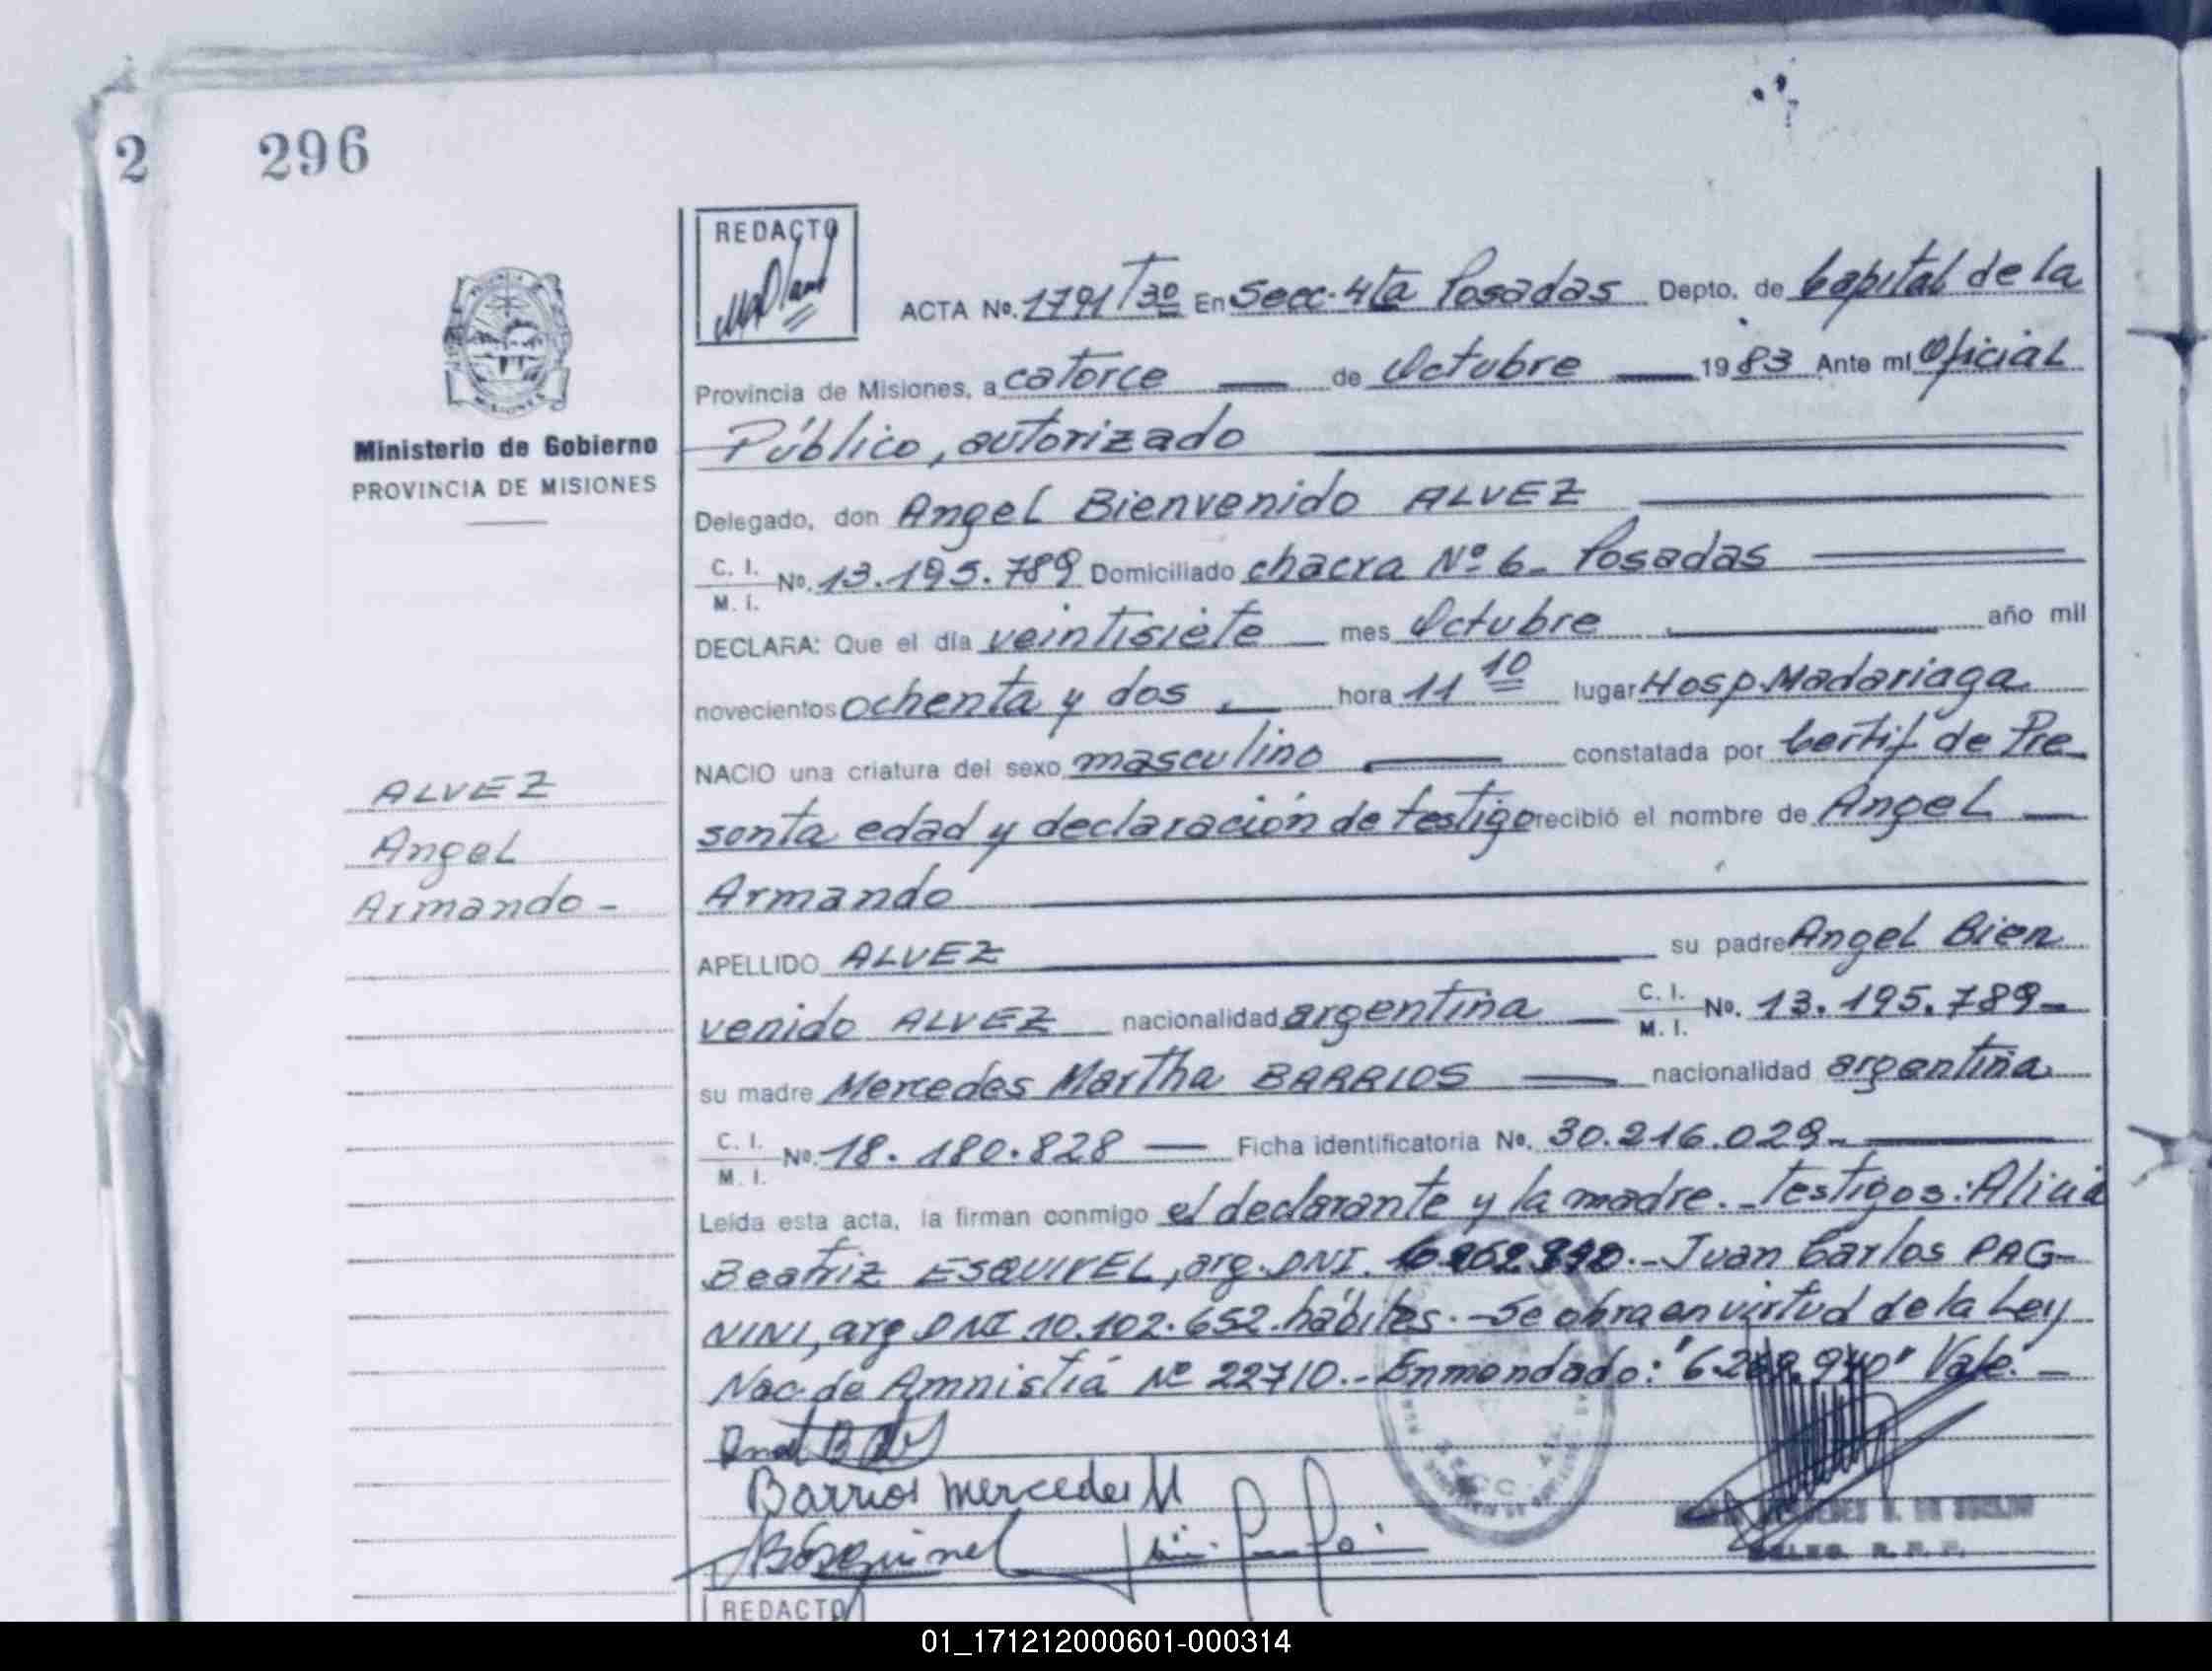 2 296
REDACTO
ACTA No. 1791 T30 En Secc. 4ta Posadas Depto. de Capital de la
Provincia de Misiones, a catorce de Octubre 1983 Ante mi Oficial
Público, autorizado
Ministerio de Gobierno
PROVINCIA DE MISIONES
Delegado, don Angel Bienvenido ALVEZ
C. I. M. I. No. 13.195.789 Domiciliado chacra Nº 6 - Posadas
DECLARA: Que el día veintisiete mes Octubre año mil
novecientos ochenta y dos, hora 11 10 lugar Hosp. Madariaga
NACIO una criatura del sexo masculino constatada por Certif de Pre
sonta edad y declaración de testigo recibió el nombre de Angel
Armando
ALVEZ
Angel
Armando -
APELLIDO ALVEZ su padre Angel Bien
venido ALVEZ nacionalidad argentina C. I. M. I. No. 13.195.789-
su madre Mercedes Martha BARRIOS nacionalidad argentina
C. I. M. I. No. 18.180.828 Ficha identificatoria No. 30.216.029-
Leída esta acta, la firman conmigo el declarante y la madre.- Testigos: Alicia
Beatriz ESQUIVEL, arg. DNI. - Juan Carlos PAG-
NINI, arg DNI 10.102.652. hábiles. - Se obra en virtud de la Ley
Nac. de Amnistía Nº 22710.- Enmendado: "6.262.940" Vale. -
Barrios Mercedes M
REDACTO
01_171212000601-000314